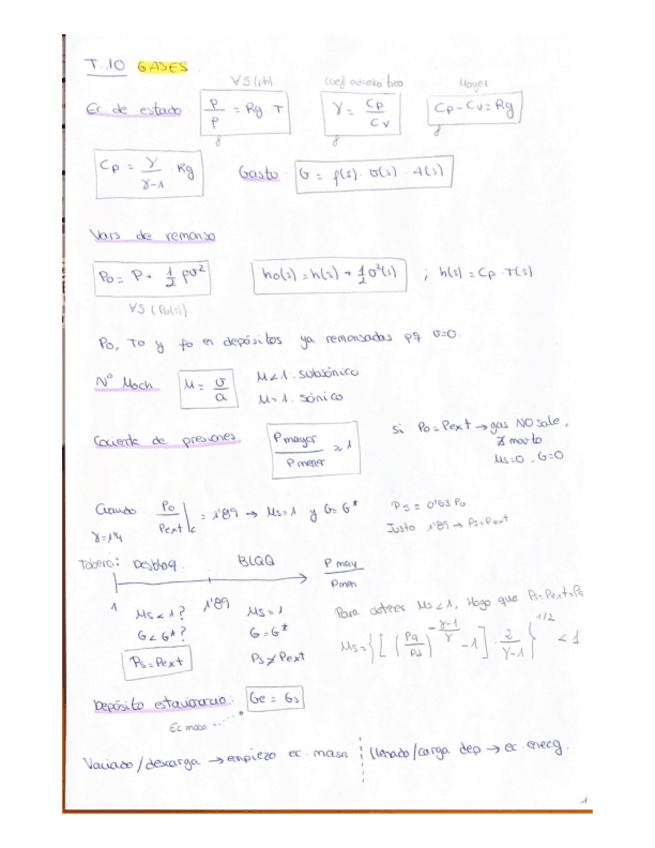 T.10 GASES
∀S (pto) coef adiabático Mayer
Ec. de estado P/ρ = Rg T γ = Cp/Cv Cp-Cv=Rg
Cp = γ/γ-1 · Rg Gasto G = ρ(s) · v(s) · A(s)
Vars de remanso
Po = P + 1/2 ρv² ho(s) = h(s) + 1/2 v²(s) ; h(s) = Cp · T(s)
∀S (Po(s))
Po, To y ρo en depósitos ya remansadas pq v=0.
Nº Mach M = v/a M<1 · subsónico
M=1 · sónico
Cociente de presiones P mayor/P menor ≥ 1 si Po = Pext → gas NO sale,
Ms=0 , G=0
Cuando Po/Pext|c = 1'89 → Ms=1 y G=G* Ps = 0'53 Po
γ=1'4 Justo 1'89 → Ps=Pext
Tobera: Desbloq. BLOQ P may/Pmen
1 1'89
Ms<1? Ms=1
G<G*? G=G*
Ps=Pext Ps≠Pext
Para obtener Ms<1, Hago que Ps=Pext=Pa
Ms={[(Pa/Po)^-γ-1/γ -1] · 2/γ-1}^1/2 <1
Depósito estacionario: Ge = Gs
Ec masa
Vaciado/descarga → empiezo ec. masa llenado/carga dep → ec. energ.
1